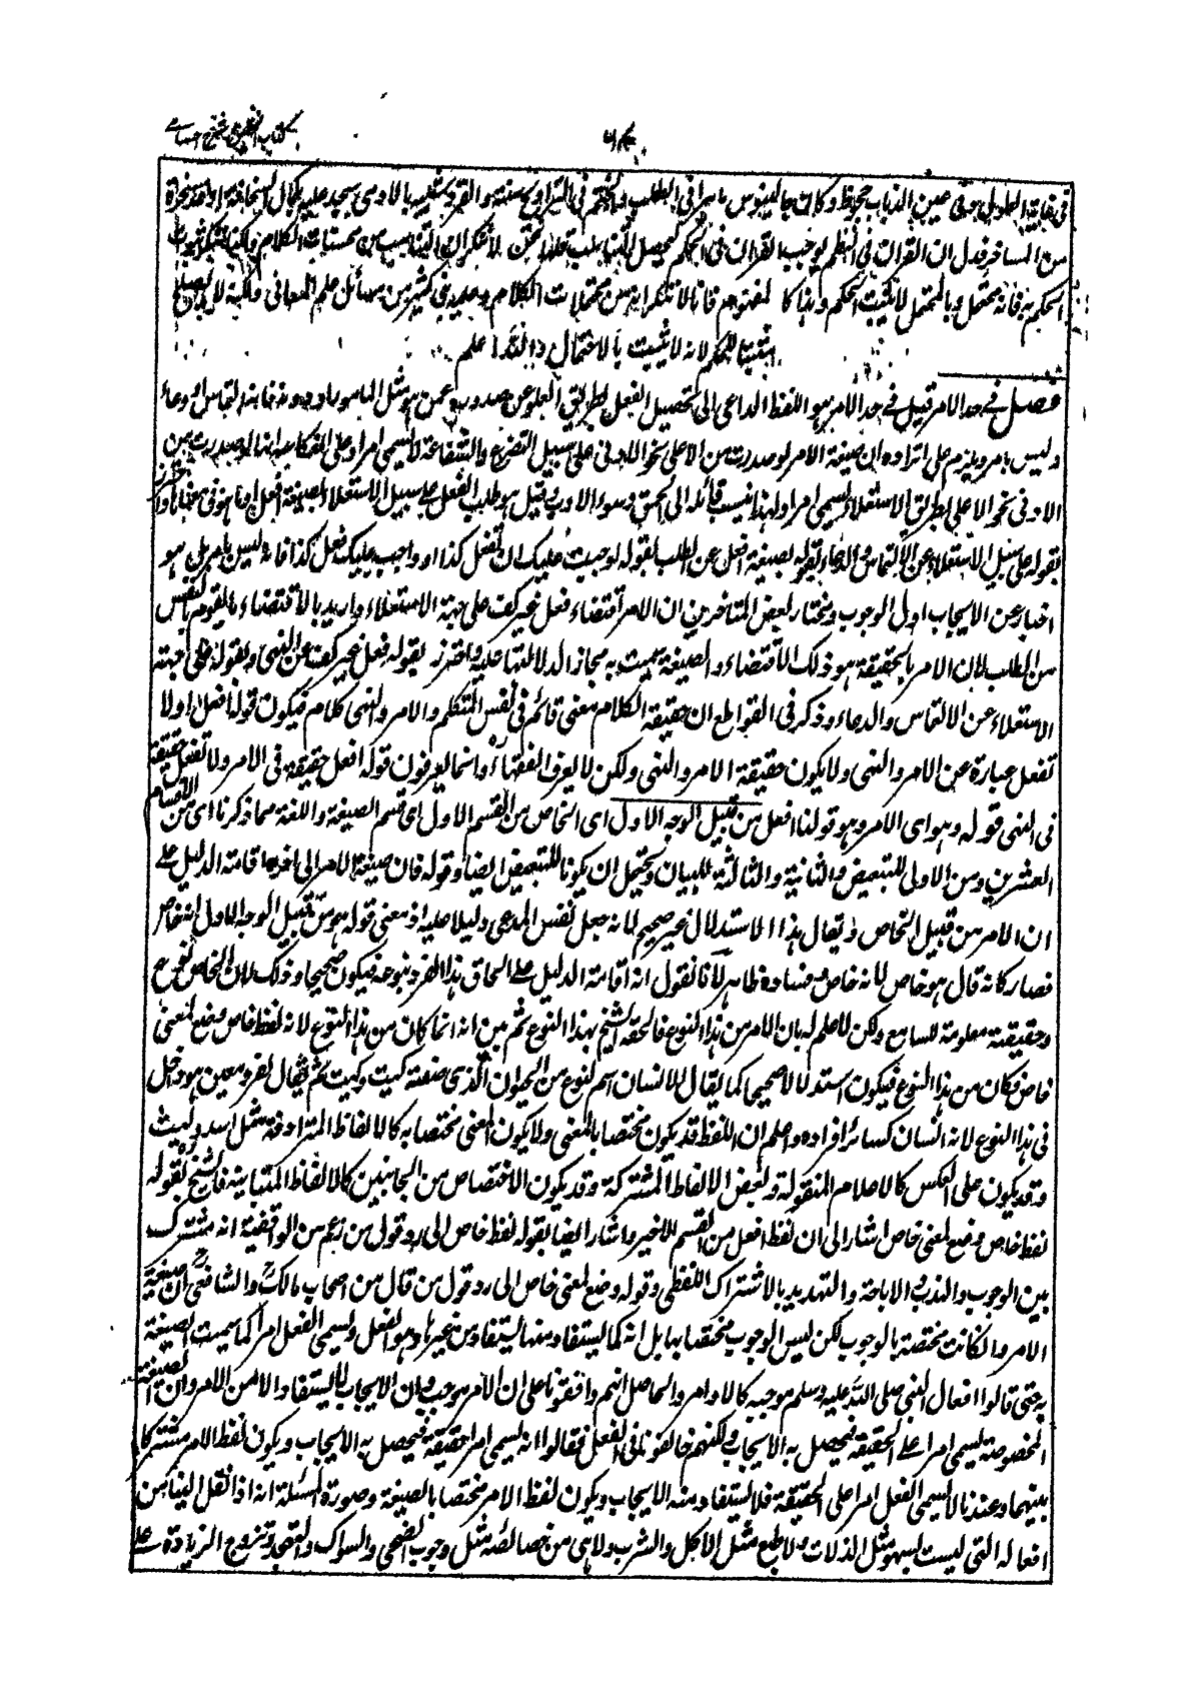 كتاب التحقيق شرح حسامي
من المسافر فدل ان القران في النظم يوجب القران في الحكم
الحكم به فانه محتمل وبالمحتمل لا يثبت الحكم وهذا كالمفهوم فانا لا ننكر انه من محتملات الكلام وعليه بني كثير من مسائل علم المعاني ولكنه لا يصلح
مثبتا للحكم لانه لا يثبت بالاحتمال والله اعلم
فصل في حد الامر قيل في حد الامر هو اللفظ الداعي الى تحصيل الفعل بطريق العلو عن صدوره عمن هو مثل المامور او دونه فانه التماس او دعاء
وليس بامر ويلزم على اطراده ان صيغة الامر لو صدرت من الاعلى نحو الادنى على سبيل التضرع والشفاعة لا يسمى امرا وعلى انعكاسه انها لو صدرت من
الادنى نحو الاعلى بطريق الاستعلاء يسمى امرا ولهذا ينسب قائله الى الحمق وسوء الادب وقيل هو طلب الفعل على سبيل الاستعلاء بصيغة افعل او ما هو في معناها واحترز
بقوله على سبيل الاستعلاء عن الالتماس والدعاء وبقوله بصيغة افعل عن الطلب بقوله اوجبت عليك ان تفعل كذا او واجب عليك فعل كذا فانه ليس بامر بل هو
اخبار عن الايجاب او الوجوب ومختار بعض المتاخرين ان الامر اقتضاء فعل غير كف على جهة الاستعلاء واريد بالاقتضاء ما يقوم بالنفس
من الطلب لان الامر بالحقيقة هو ذلك الاقتضاء والصيغة سميت به مجازا لدلالتها عليه واحترز بقوله فعل غير كف عن النهي وبقوله على جهة
الاستعلاء عن الالتماس والدعاء وذكر في القواطع ان حقيقة الكلام معنى قائم في نفس المتكلم والامر والنهي كلام فيكون قوله افعل او لا
تفعل عبارة عن الامر والنهي ولا يكون حقيقة الامر والنهي ولكن لا يعرف الفقهاء وانما يعرفون قوله افعل حقيقة في الامر ولا تفعل حقيقة
في النهي قوله وهو اي الامر وهو قولنا افعل من قبيل الوجه الاول اي الخاص من القسم الاول اي قسم الصيغة واللغة مما ذكرنا اي من الاقسام
العشرين ومن الاولى للتبعيض والثانية والثالثة للبيان ويحتمل ان يكونا للتبعيض ايضا وقوله فان صيغة الامر الى اخرها اقامة الدليل على
ان الامر من قبيل الخاص ولا يقال هذا الاستدلال غير صحيح لانه جعل نفس المدعى دليلا عليه اذ معنى قوله هو من قبيل الوجه الاول انه خاص
فصار كانه قال هو خاص لانه خاص وفساده ظاهر لانا نقول انه اقامة الدليل على الحاق هذا الفرد بنوعه فيكون صحيحا وذلك لان الخاص نوع
وحقيقته معلومة للسامع ولكن لا علم له بان الامر من هذا النوع فالحقه الشيخ بهذا النوع ثم بين انه انما كان من هذا النوع لانه لفظ خاص وضع لمعنى
خاص فكان من هذا النوع فيكون استدلالا صحيحا كما يقال الانسان اسم لنوع من الحيوان الذي صفته كيت وكيت ثم يقال لفرد معين هو داخل
في هذا النوع لانه انسان كسائر افراده واعلم ان اللفظ قد يكون مختصا بالمعنى ولا يكون المعنى مختصا به كالالفاظ المترادفة مثل اسد وليث
وقد يكون على العكس كالاعلام المنقولة وبعض الالفاظ المشتركة وقد يكون الاختصاص من الجانبين كالالفاظ المتباينة فالشيخ بقوله
لفظ خاص وضع لمعنى خاص اشار الى ان لفظ افعل من القسم الاخير واشار ايضا بقوله لفظ خاص الى رد قول من زعم من الواقفية انه مشترك
بين الوجوب والندب والاباحة والتهديد بالاشتراك اللفظي وقوله وضع لمعنى خاص الى رد قول من قال من اصحاب مالك والشافعي ان صيغة
الامر وان كانت مختصة بالوجوب لكن ليس الوجوب مختصا بها بل انه كما يستفاد منها يستفاد من غيرها وهو الفعل ويسمى الفعل امرا كما سميت الصيغة
به حتى قالوا افعال النبي صلى الله عليه وسلم موجبة كالاوامر والحاصل انهم وافقونا على ان الامر موجب وان الايجاب لا يستفاد الا من الامر وان الصيغة
المخصوصة تسمى امرا على الحقيقة فيحصل به الايجاب ولكنهم خالفونا في الفعل فقالوا انه يسمى امرا حقيقة فيحصل به الايجاب ويكون لفظ الامر مشتركا
بينهما وعندنا لا يسمى الفعل امرا على الحقيقة فلا يستفاد منه الايجاب ويكون لفظ الامر مختصا بالصيغة وصورة المسئلة انه اذا نقل الينا من
افعاله التي ليست بسهو مثل الزلات ولا طبع مثل الاكل والشرب ولا هي من خصائصه مثل وجوب الضحى والسواك والتهجد وتزوج الزيادة على